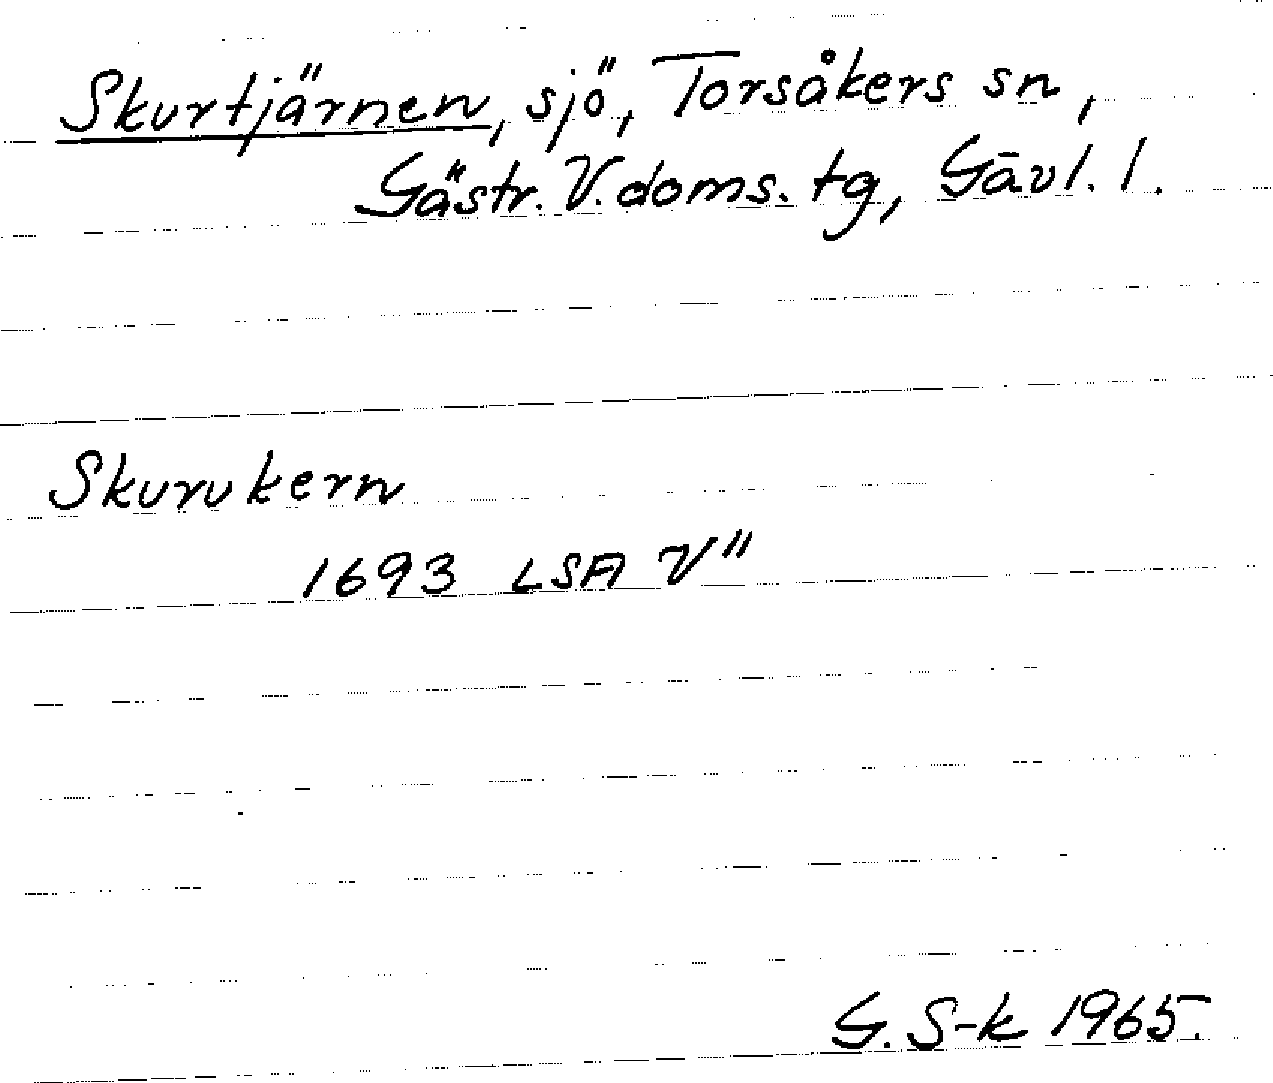 Skurtjärnen, sjö, Torsåkers sn,
Gästr. V. doms. tg, Gävl. l.
Skurukern
1693 LSA V"
G. S-k 1965.